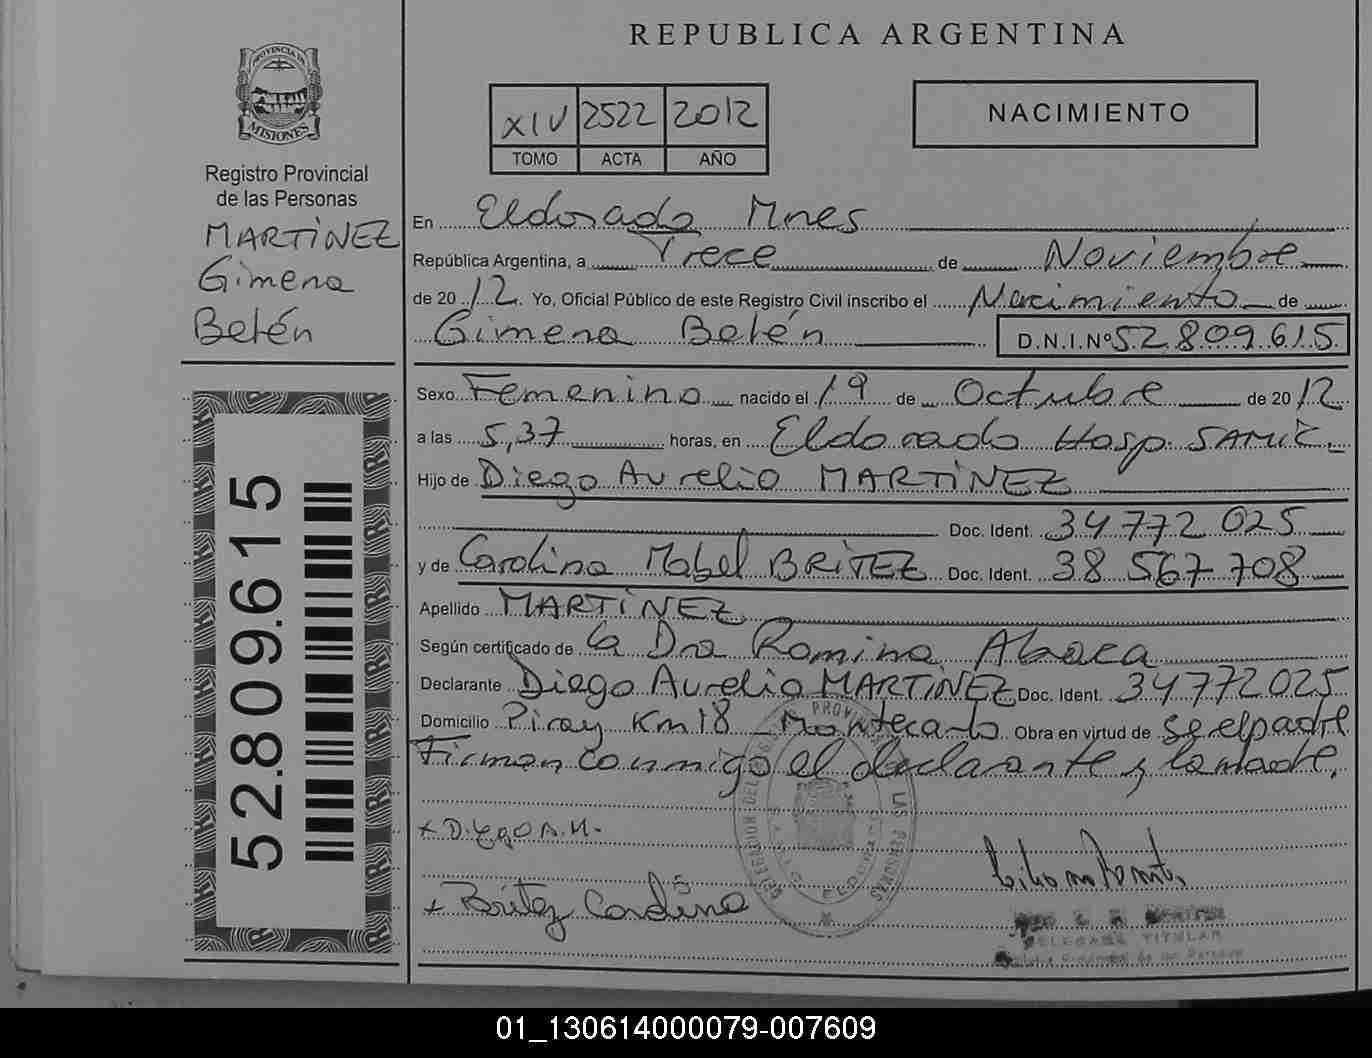 REPUBLICA ARGENTINA
PROVINCIA DE
MISIONES
Registro Provincial
de las Personas
MARTÍNEZ
Gimena
Belén
52.809.615
XIV 2522 2012
TOMO ACTA AÑO
NACIMIENTO
En Eldorado Mnes
República Argentina, a Trece de Noviembre
de 2012. Yo, Oficial Público de este Registro Civil inscribo el Nacimiento de
Gimena Belén D.N.I.Nº 52.809.615
Sexo Femenino nacido el 19 de Octubre de 2012
a las 5,37 horas, en Eldorado Hosp. SAMIC
Hijo de Diego Aurelio MARTÍNEZ
Doc. Ident. 34 772 025
y de Carolina Mabel BRÍTEZ Doc. Ident. 38 567 708
Apellido MARTÍNEZ
Según certificado de la Dra Romina
Declarante Diego Aurelio MARTÍNEZ Doc. Ident. 34 772 025
Domicilio Piray Km 18 Montecarlo Obra en virtud de se el padre
Firman conmigo el declarante y la madre.
+ Diego A.M.
+ Britez Carolina
DELEGADA TITULAR
01_130614000079-007609